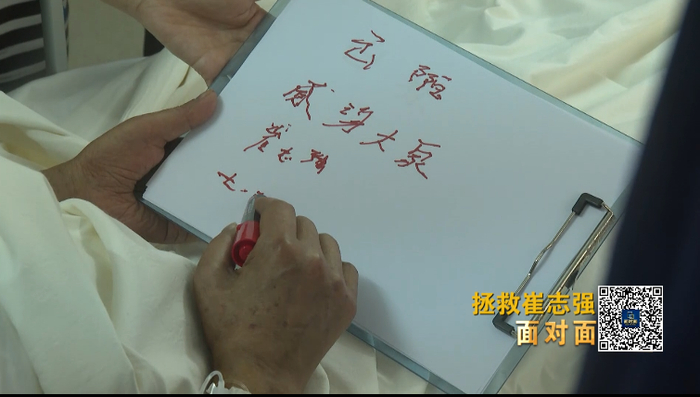 已醒
感谢大家
崔志强
拯救崔志强
面对面